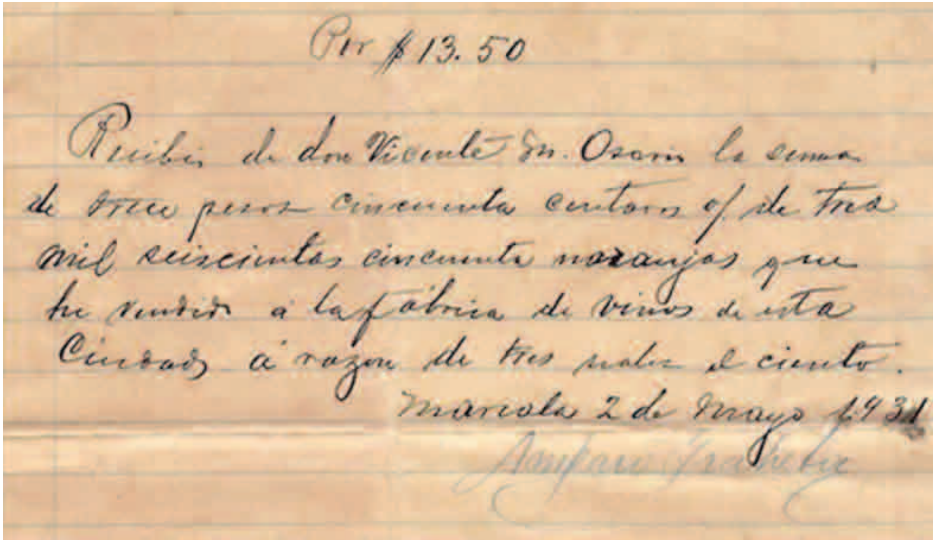 Por $ 13.50
Recibí de don Vicente M. Osorio la suma
de trece pesos cincuenta centavos o/ de tres
mil seiscientas cincuenta naranjas que
he vendido á la fábrica de vinos de esta
Ciudad á razon de tres reales el ciento.
2 de Mayo 1931
Amparo